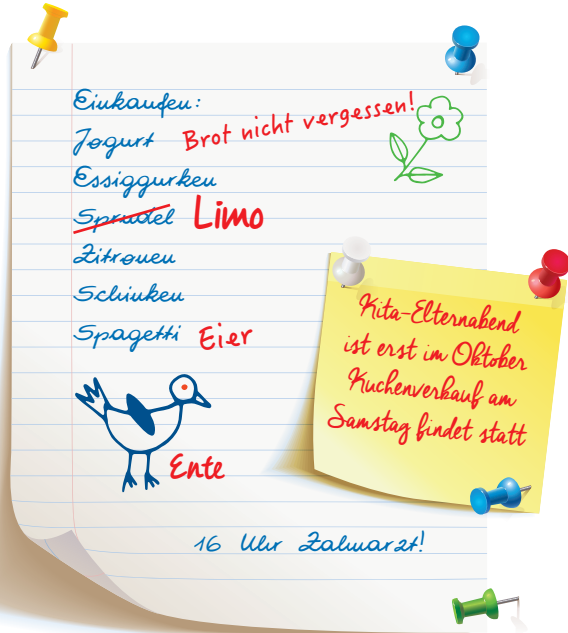 Einkaufen:
Jogurt Brot nicht vergessen!
Essiggurken
Sprudel Limo
Zitronen
Schinken
Spagetti Eier
Ente
16 Uhr Zahnarzt!
Kita-Elternabend
ist erst im Oktober
Kuchenverkauf am
Samstag findet statt